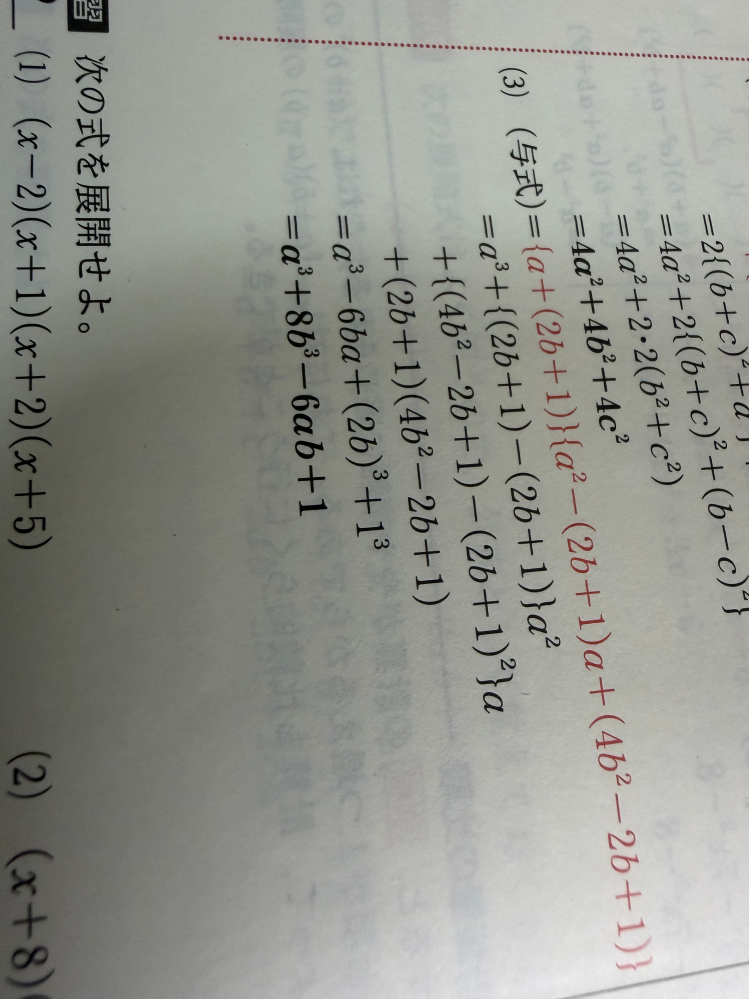 =2{(b+c)²+a
=4a²+2{(b+c)²+(b−c)²}
=4a²+2・2(b²+c²)
=4a²+4b²+4c²
(3) (与式)={a+(2b+1)}{a²−(2b+1)a+(4b²−2b+1)}
=a³+{(2b+1)−(2b+1)}a²
+{(4b²−2b+1)−(2b+1)²}a
+(2b+1)(4b²−2b+1)
=a³−6ba+(2b)³+1³
=a³+8b³−6ab+1
次の式を展開せよ。
(1) (x−2)(x+1)(x+2)(x+5) (2) (x+8)(